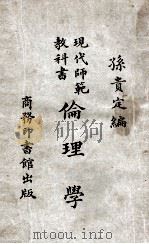 孫貴定編
現代師範
教科書
倫理學
商務印書館出版
www.duxiu.com